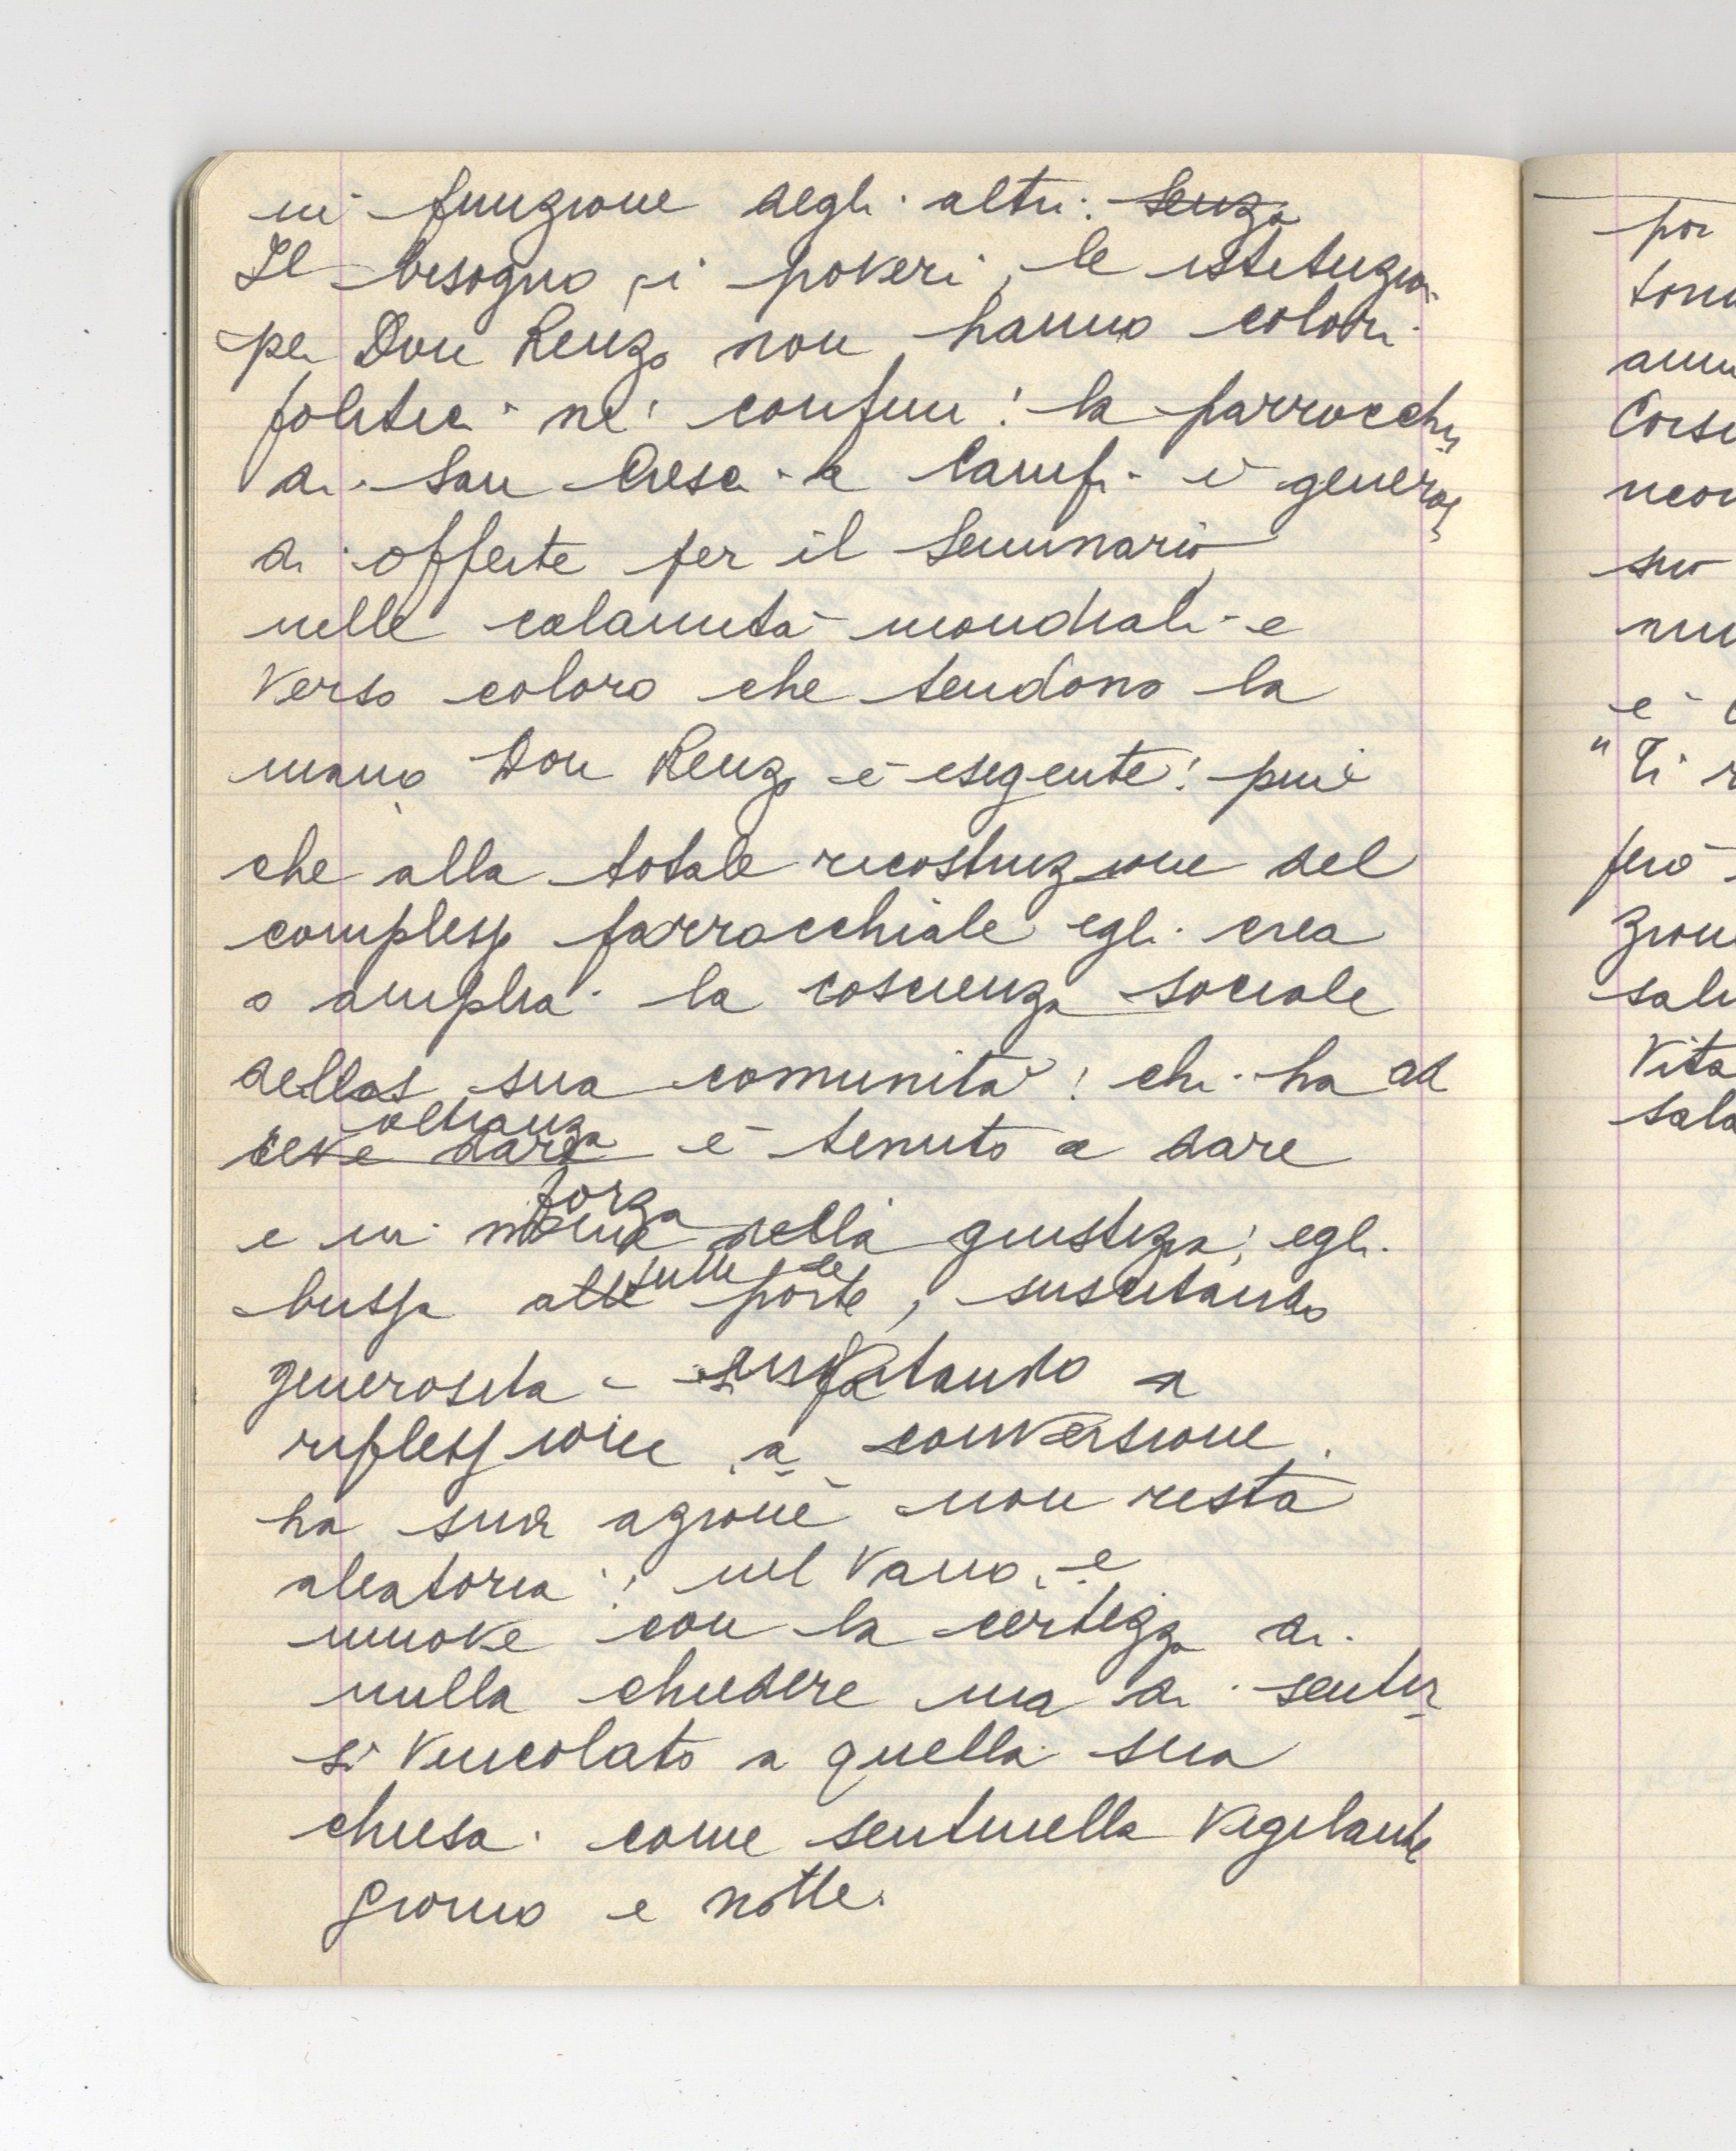 in funzione degli altri. Senza
Il bisogno, i poveri, le istituzioni
per Don Renzo non hanno colori
politici né confini: la parrocchia
di San Cresci a Campi è generosa
di offerte per il Seminario,
nelle calamità mondiali e
verso coloro che tendono la
mano Don Renzo è esigente: più
che alla totale ricostruzione del
complesso parrocchiale egli crea
o amplia la coscienza sociale
della sua comunità: chi ha ad
oltranza
deve dare è tenuto a dare
forza
e in nome della giustizia; egli
tutte le
bussa alle porte, suscitando
generosità - invitando a
riflessione, a conversione.
La sua azione non resta
aleatoria: nel vano, e
muove con la certezza di
nulla chiedere ma di sentir
si vincolato a quella sua
chiesa come sentinella vigilante
giorno e notte.
poi
"Ti
però
Vita